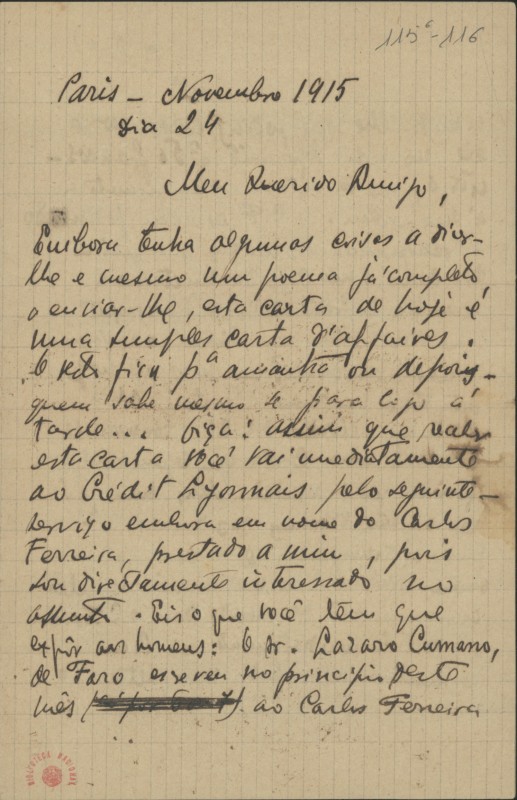 115⁶-116
Paris – Novembro 1915
Dia 24
Meu Querido Amigo,
Embora tenha algumas coisas a dizer-
lhe e mesmo um poema já completo,
a enviar-lhe, esta carta de hoje é
uma simples carta d'affaires.
O resto fica pª amanhã ou depois –
quem sabe mesmo se para logo á
tarde... Oiça: assim que receba
esta carta você vai imediatamente
ao Crédit Lyonnais pelo seguinte –
serviço embora em nome do Carlos
Ferreira, prestado a mim, pois
sou directamente interessado no
assunto. Eis o que você tem que
expôr aos homens: O dr. Lazaro Cumano,
de Faro escreveu no principio deste
mês ao Carlos Ferreira
BIBLIOTECA NACIONAL